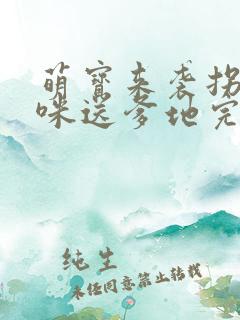 萌宝来袭拐
咪送爹地完
纯生
未经同意禁止转载